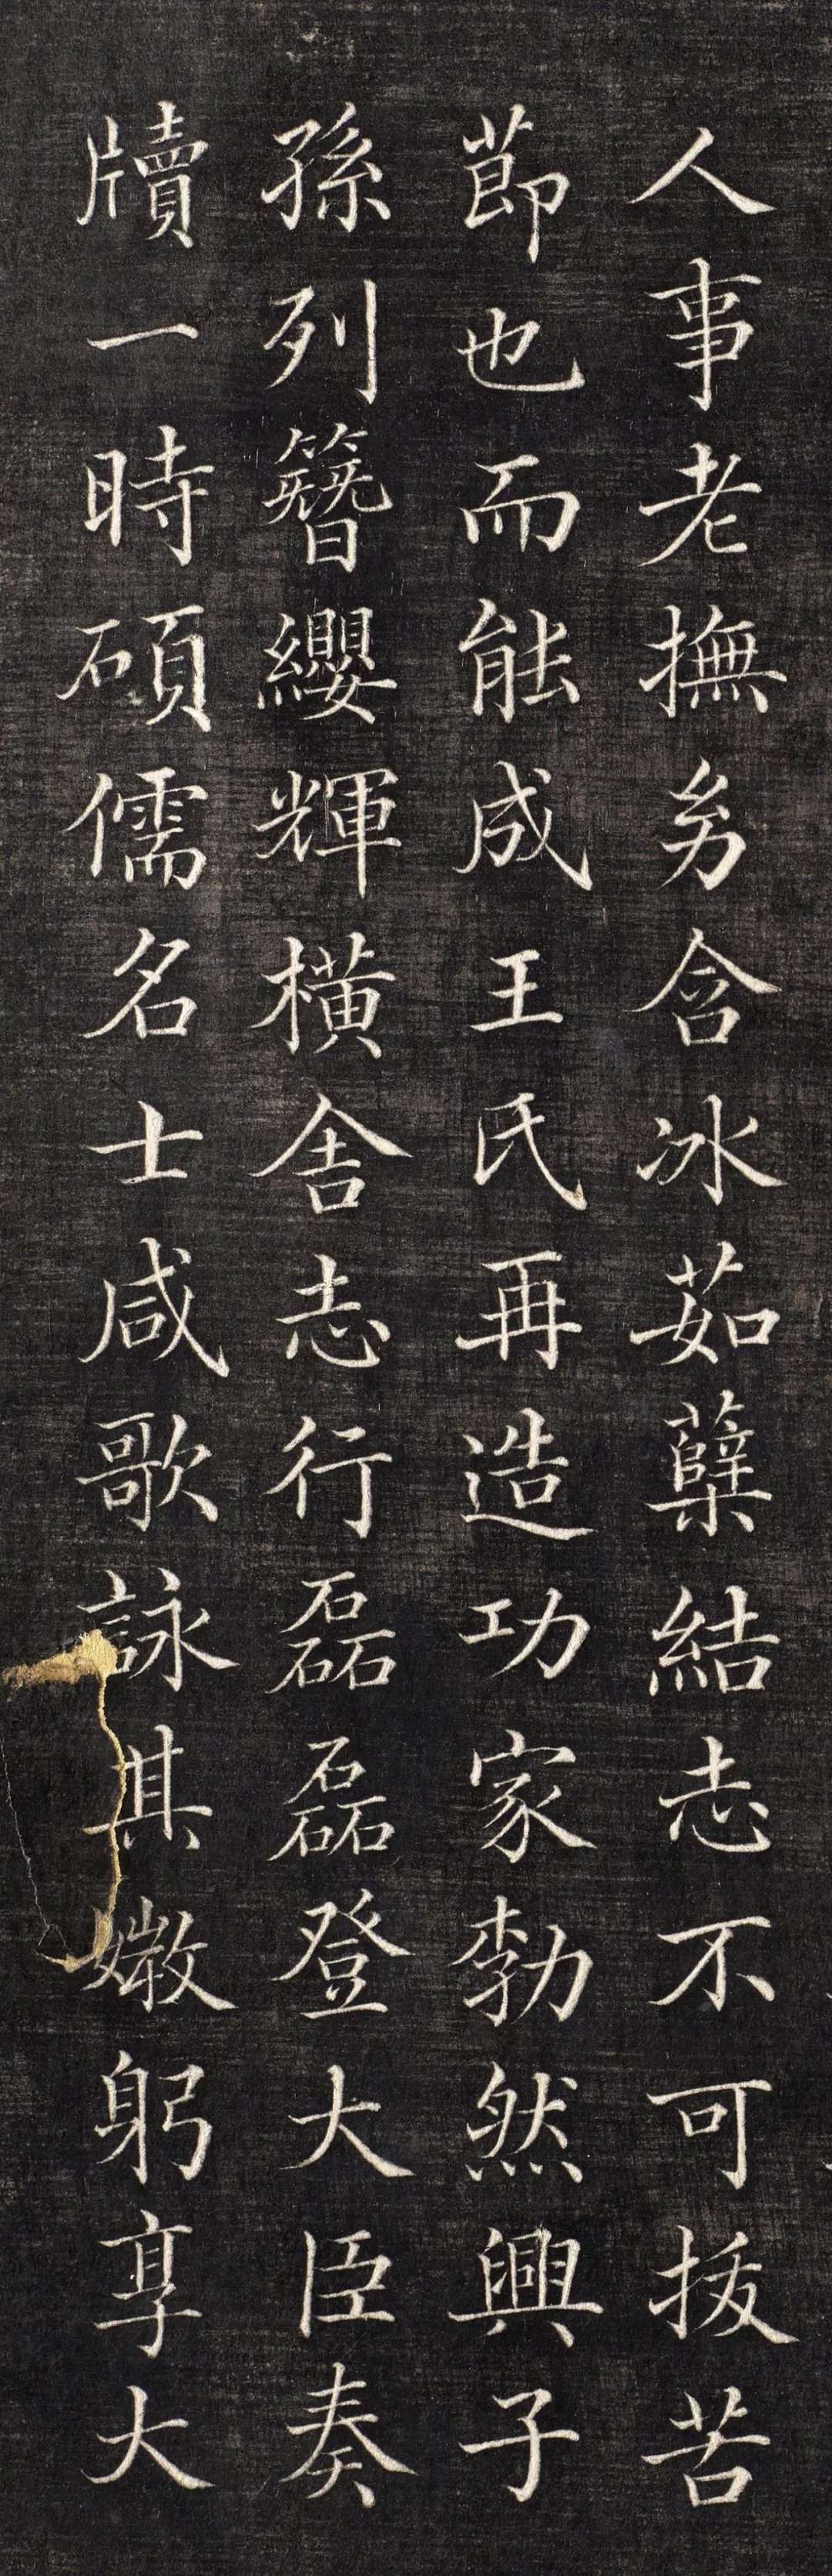 人事老撫㓜含冰茹蘖結志不可拔苦
節也而能成王氏再造功家勃然興子
孫列簪纓輝橫舍志行磊磊登大臣奏
牘一時碩儒名士咸歌詠其媺躬享大